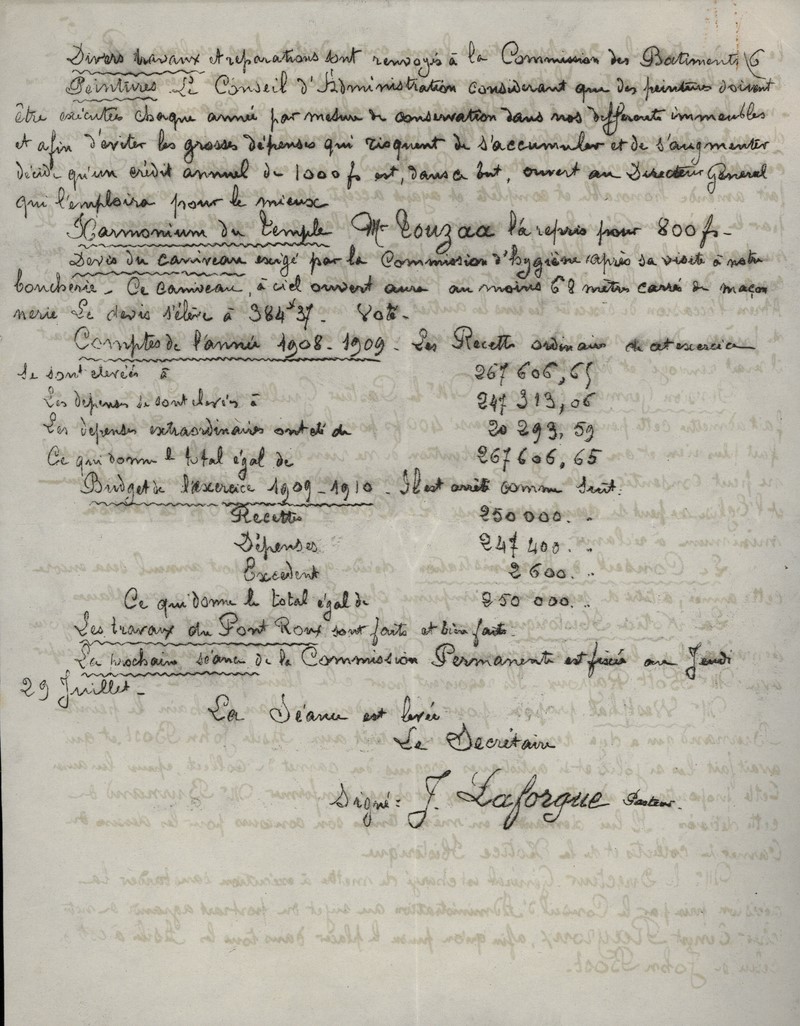 Divers travaux et reparations sont renvoyés à la Commission des Batiments 6
Peintures Le Conseil d'Administration considerant que des peintures doivent
être exécutées chaque année par mesure de conservation dans nos differents immeubles
et afin d'eviter les grosses dépenses qui risquent de s'accumuler et de s'augmenter
décide qu'un crédit annuel de 1000 f est, dans ce but, ouvert au Directeur Général
qui l'emploira pour le mieux
Harmonium du temple Mr Touzaa l'a repris pour 800 f -
Devis du caniveau exigé par la Commission d'hygiène après sa visite à notre
boucherie - Ce caniveau, à ciel ouvert aura au moins 68 metres carrés de maçon
nerie Le devis s'élève à 384 f 37. Voté -
Comptes de l'année 1908-1909 - Les Recettes ordinaires de cet exercice
se sont elevées à 267 606,65
Les dépenses se sont elevées à 247 313,06
Les depenses extraordinaires ont été de 20 293,59
Ce qui donne le total égal de 267 606,65
Budget de l'exercice 1909-1910 - Il est arrêté comme suit:
Recettes 250 000. "
Dépenses 247 400. "
Excedent 2 600. "
Ce qui donne le total égal de 250 000. "
Les travaux du Pont Roux sont faits et bien faits.
La prochaine séance de la Commission Permanente est fixée au Jeudi
29 Juillet -
La Séance est levée
Le Secrétaire
Signé: J. Laforgue Pasteur.